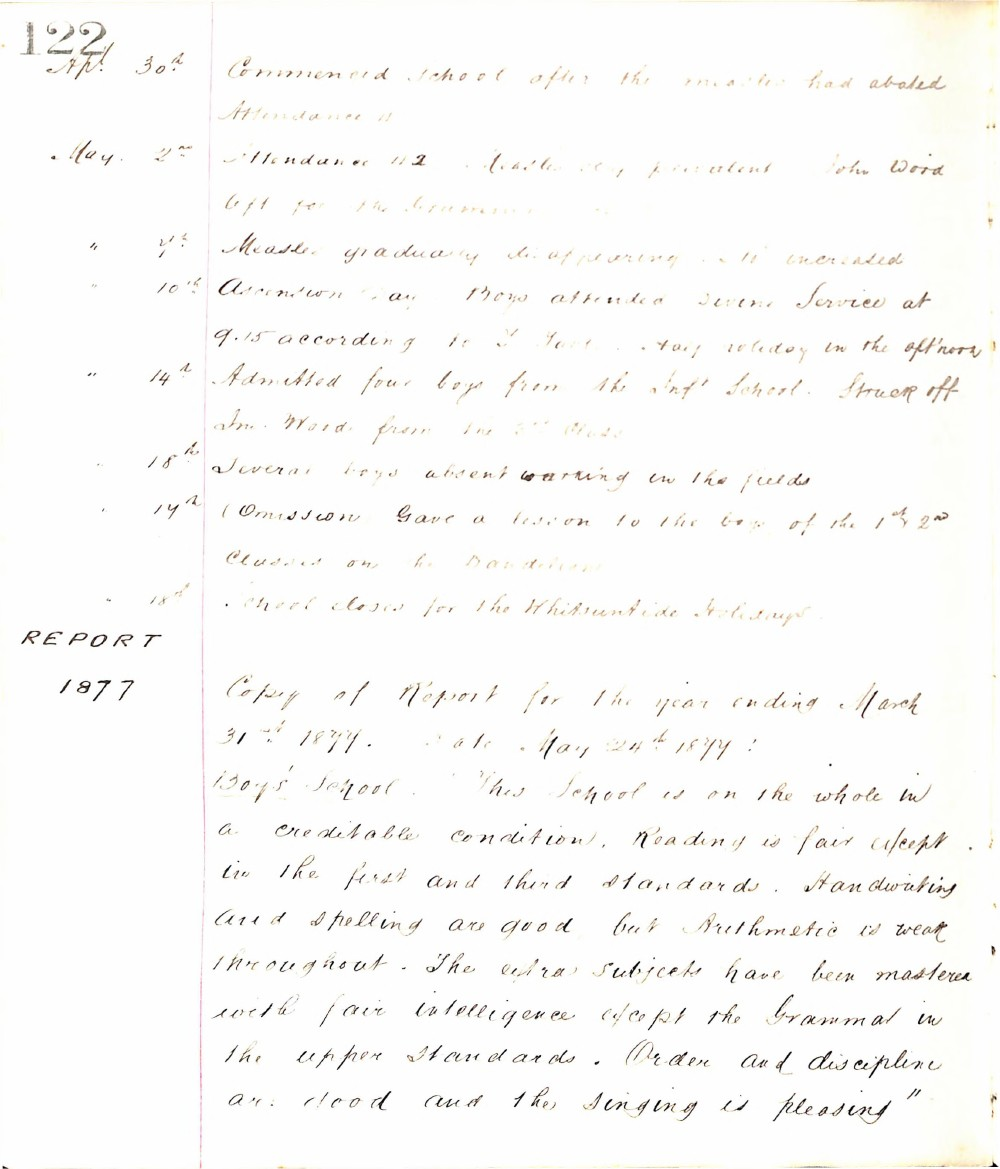 122
Apl. 30th Commenced school after the measles had abated
Attendance
May. 2nd Attendance 112 Measles very prevalent John Word
left for the Grammar
" 7th Measles gradually disappearing. increased
" 10th Ascension Day Boys attended Divine Service at
9.15 according to Half holiday in the aft'noon
" 14th Admitted four boys from the Inft School. Struck off
Jno. Word from the 3rd Class
" 18th Several boys absent working in the fields
" 17th (Omission) Gave a lesson to the boys of the 1st & 2nd
Classes on the Dandelion
" 18th School closes for the Whitsuntide Holidays.
REPORT
1877
Copy of Report for the year ending March
31st 1877. Date May 24th 1877:
Boys' School. "This School is on the whole in
a creditable condition. Reading is fair except
in the first and third standards. Handwriting
and spelling are good but Arithmetic is weak
throughout. The extra subjects have been mastered
with fair intelligence except the Grammar in
the upper standards. Order and discipline
are good and the singing is pleasing"